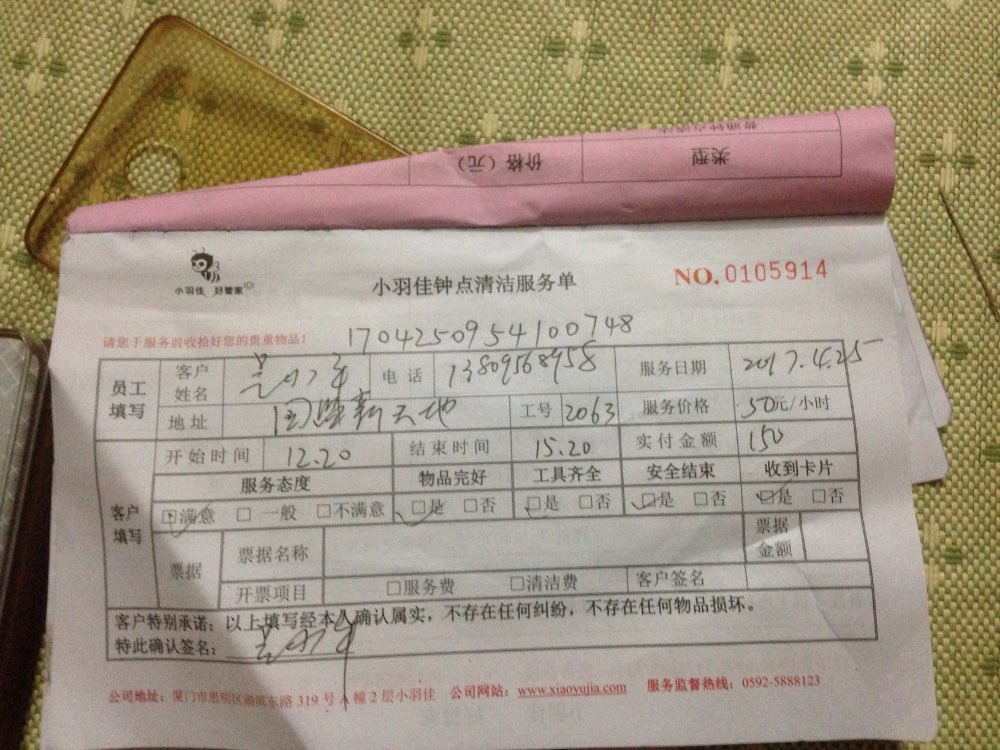 普通钟点清洁
类型 价格（元）
小羽佳 好管家
小羽佳钟点清洁服务单
NO. 0105914
请您于服务前收拾好您的贵重物品！
170425095410 0748
员工填写 客户姓名 电话 13809568958 服务日期 2017.4.25
地址 国贸新天地 工号 2063 服务价格 50元/小时
开始时间 12.20 结束时间 15.20 实付金额 150
客户填写 服务态度 物品完好 工具齐全 安全结束 收到卡片
☑满意 □一般 □不满意 ☑是 □否 ☑是 □否 ☑是 □否 ☑是 □否
票据 票据名称 票据金额
开票项目 □服务费 □清洁费 客户签名
客户特别承诺：以上填写经本人确认属实，不存在任何纠纷，不存在任何物品损坏。
特此确认签名：
公司地址：厦门市思明区湖滨东路 319 号 A 幢 2 层小羽佳 公司网站：www.xiaoyujia.com 服务监督热线：0592-5888123